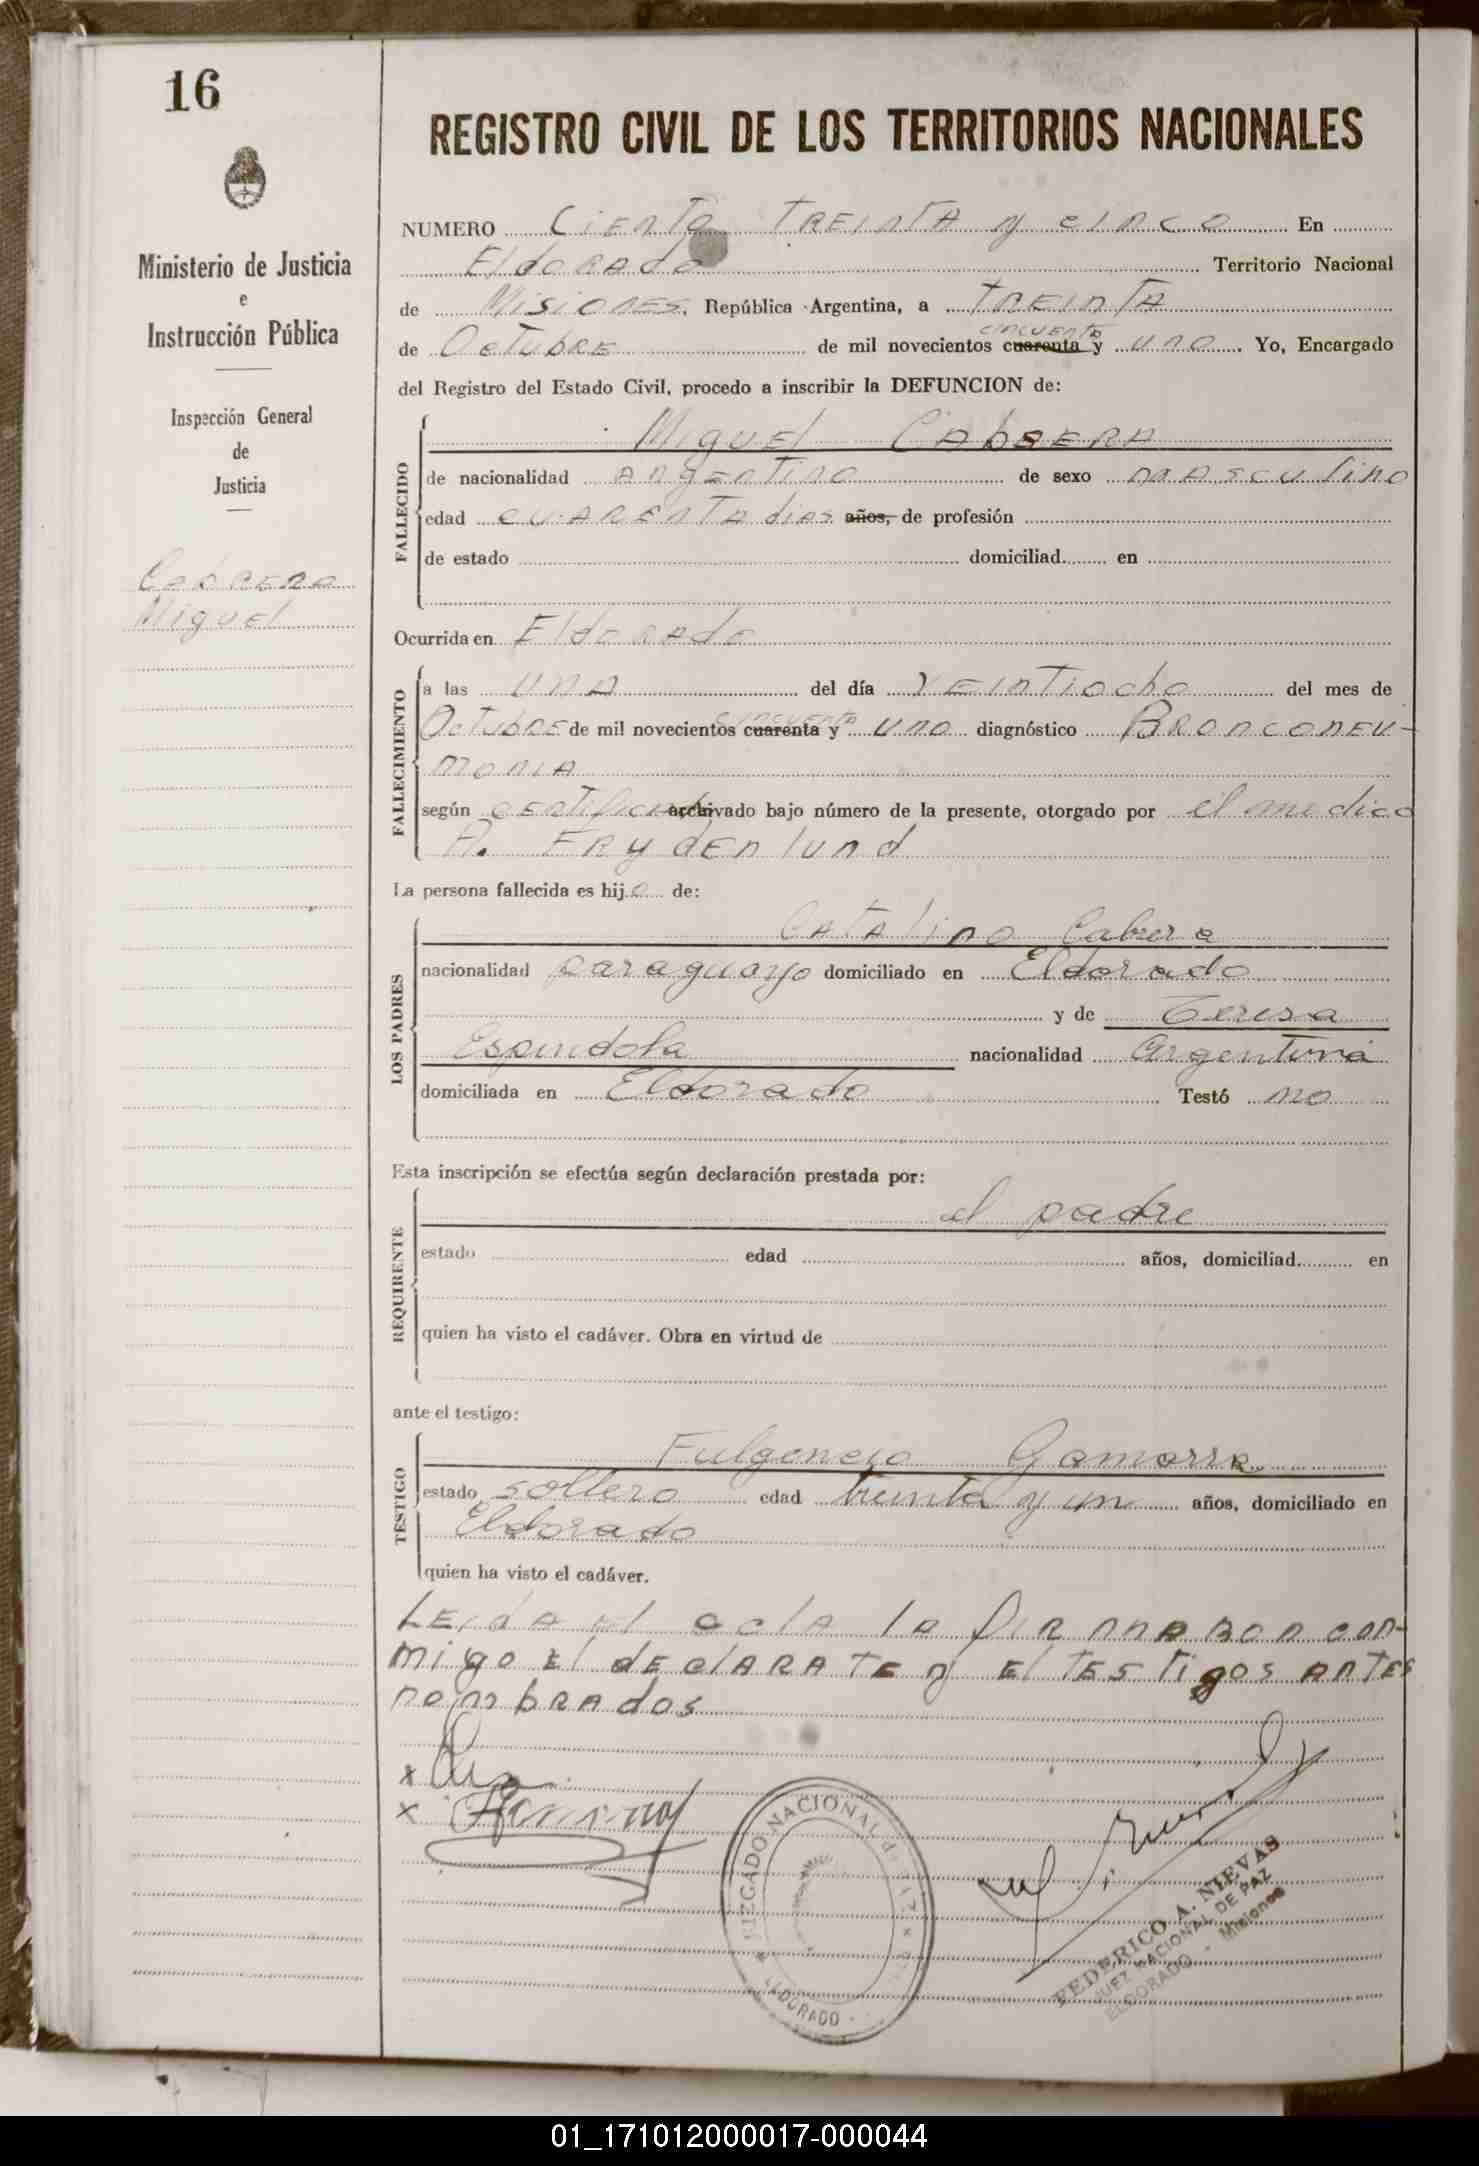 16
REGISTRO CIVIL DE LOS TERRITORIOS NACIONALES
Ministerio de Justicia
e
Instrucción Pública
Inspección General
de
Justicia
Cabrera
Miguel
NUMERO Ciento treinta y cinco En
Eldorado Territorio Nacional
de Misiones, República Argentina, a treinta
cincuenta
de Octubre de mil novecientos cuarenta y uno. Yo, Encargado
del Registro del Estado Civil, procedo a inscribir la DEFUNCION de:
FALLECIDO
Miguel Cabrera
de nacionalidad argentino de sexo masculino
edad cuarenta dias años, de profesión
de estado domiciliad en
Ocurrida en Eldorado
FALLECIMIENTO
a las una del día veintiocho del mes de
cincuenta
Octubre de mil novecientos cuarenta y uno diagnóstico Bronconeu-
monia
según certificado archivado bajo número de la presente, otorgado por el medico
A. Frydenlund
La persona fallecida es hijo de:
LOS PADRES
Catalino Cabrera
nacionalidad paraguayo domiciliado en Eldorado
y de Teresa
Espindola nacionalidad Argentina
domiciliada en Eldorado Testó no
Esta inscripción se efectúa según declaración prestada por:
REQUIRENTE
el padre
estado edad años, domiciliad en
quien ha visto el cadáver. Obra en virtud de
ante el testigo:
TESTIGO
Fulgencio Gamarra
estado soltero edad treinta y un años, domiciliado en
Eldorado
quien ha visto el cadáver.
Leida el acta la firmaron con-
migo el declarate y el testigos antes
nombrados
JUZGADO NACIONAL de PAZ
ELDORADO
FEDERICO A. NIEVAS
JUEZ NACIONAL DE PAZ
ELDORADO - Misiones
01_171012000017-000044